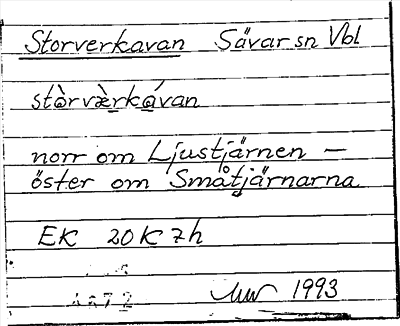 Storverkavan Sävar sn Vbl
stòrvæ̀rkávan
norr om Ljustjärnen –
öster om Småtjärnarna
EK 20K 7h
1993